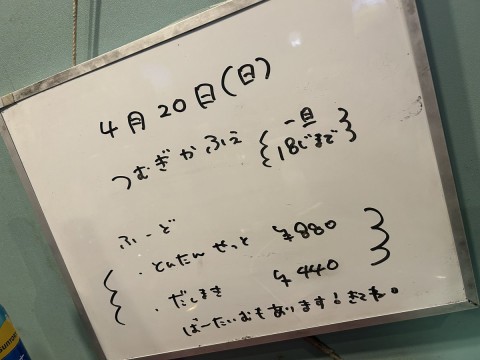 4月20日(日)
つむぎかふぇ {一旦 18じまで}
ふーど
・とんたんせっと ¥880
・だしまき ¥440
ばーたいむもあります!きてね。